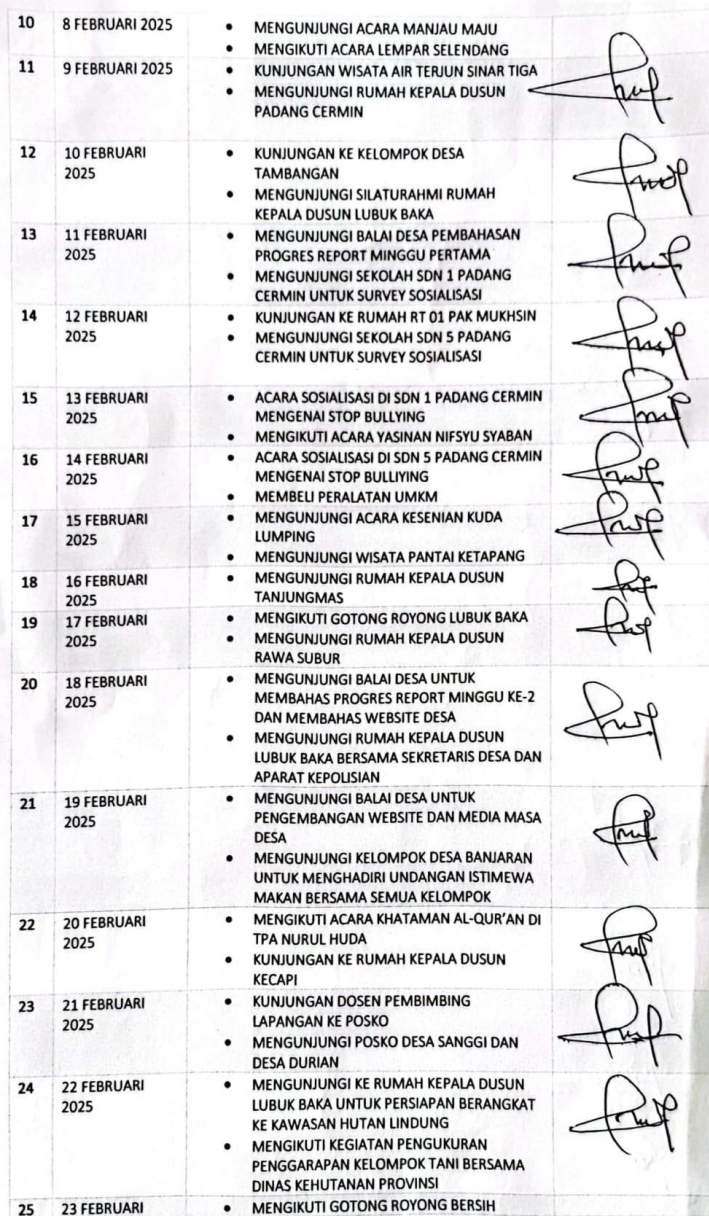 10 8 FEBRUARI 2025 • MENGUNJUNGI ACARA MANJAU MAJU
• MENGIKUTI ACARA LEMPAR SELENDANG
11 9 FEBRUARI 2025 • KUNJUNGAN WISATA AIR TERJUN SINAR TIGA
• MENGUNJUNGI RUMAH KEPALA DUSUN
PADANG CERMIN
12 10 FEBRUARI • KUNJUNGAN KE KELOMPOK DESA
2025 TAMBANGAN
• MENGUNJUNGI SILATURAHMI RUMAH
KEPALA DUSUN LUBUK BAKA
13 11 FEBRUARI • MENGUNJUNGI BALAI DESA PEMBAHASAN
2025 PROGRES REPORT MINGGU PERTAMA
• MENGUNJUNGI SEKOLAH SDN 1 PADANG
CERMIN UNTUK SURVEY SOSIALISASI
14 12 FEBRUARI • KUNJUNGAN KE RUMAH RT 01 PAK MUKHSIN
2025 • MENGUNJUNGI SEKOLAH SDN 5 PADANG
CERMIN UNTUK SURVEY SOSIALISASI
15 13 FEBRUARI • ACARA SOSIALISASI DI SDN 1 PADANG CERMIN
2025 MENGENAI STOP BULLYING
• MENGIKUTI ACARA YASINAN NIFSYU SYABAN
16 14 FEBRUARI • ACARA SOSIALISASI DI SDN 5 PADANG CERMIN
2025 MENGENAI STOP BULLIYING
• MEMBELI PERALATAN UMKM
17 15 FEBRUARI • MENGUNJUNGI ACARA KESENIAN KUDA
2025 LUMPING
• MENGUNJUNGI WISATA PANTAI KETAPANG
18 16 FEBRUARI • MENGUNJUNGI RUMAH KEPALA DUSUN
2025 TANJUNGMAS
19 17 FEBRUARI • MENGIKUTI GOTONG ROYONG LUBUK BAKA
2025 • MENGUNJUNGI RUMAH KEPALA DUSUN
RAWA SUBUR
20 18 FEBRUARI • MENGUNJUNGI BALAI DESA UNTUK
2025 MEMBAHAS PROGRES REPORT MINGGU KE-2
DAN MEMBAHAS WEBSITE DESA
• MENGUNJUNGI RUMAH KEPALA DUSUN
LUBUK BAKA BERSAMA SEKRETARIS DESA DAN
APARAT KEPOLISIAN
21 19 FEBRUARI • MENGUNJUNGI BALAI DESA UNTUK
2025 PENGEMBANGAN WEBSITE DAN MEDIA MASA
DESA
• MENGUNJUNGI KELOMPOK DESA BANJARAN
UNTUK MENGHADIRI UNDANGAN ISTIMEWA
MAKAN BERSAMA SEMUA KELOMPOK
22 20 FEBRUARI • MENGIKUTI ACARA KHATAMAN AL-QUR'AN DI
2025 TPA NURUL HUDA
• KUNJUNGAN KE RUMAH KEPALA DUSUN
KECAPI
23 21 FEBRUARI • KUNJUNGAN DOSEN PEMBIMBING
2025 LAPANGAN KE POSKO
• MENGUNJUNGI POSKO DESA SANGGI DAN
DESA DURIAN
24 22 FEBRUARI • MENGUNJUNGI KE RUMAH KEPALA DUSUN
2025 LUBUK BAKA UNTUK PERSIAPAN BERANGKAT
KE KAWASAN HUTAN LINDUNG
• MENGIKUTI KEGIATAN PENGUKURAN
PENGGARAPAN KELOMPOK TANI BERSAMA
DINAS KEHUTANAN PROVINSI
25 23 FEBRUARI • MENGIKUTI GOTONG ROYONG BERSIH